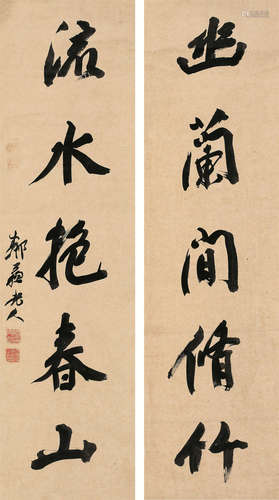 幽蘭間脩竹
流水抱春山
老人